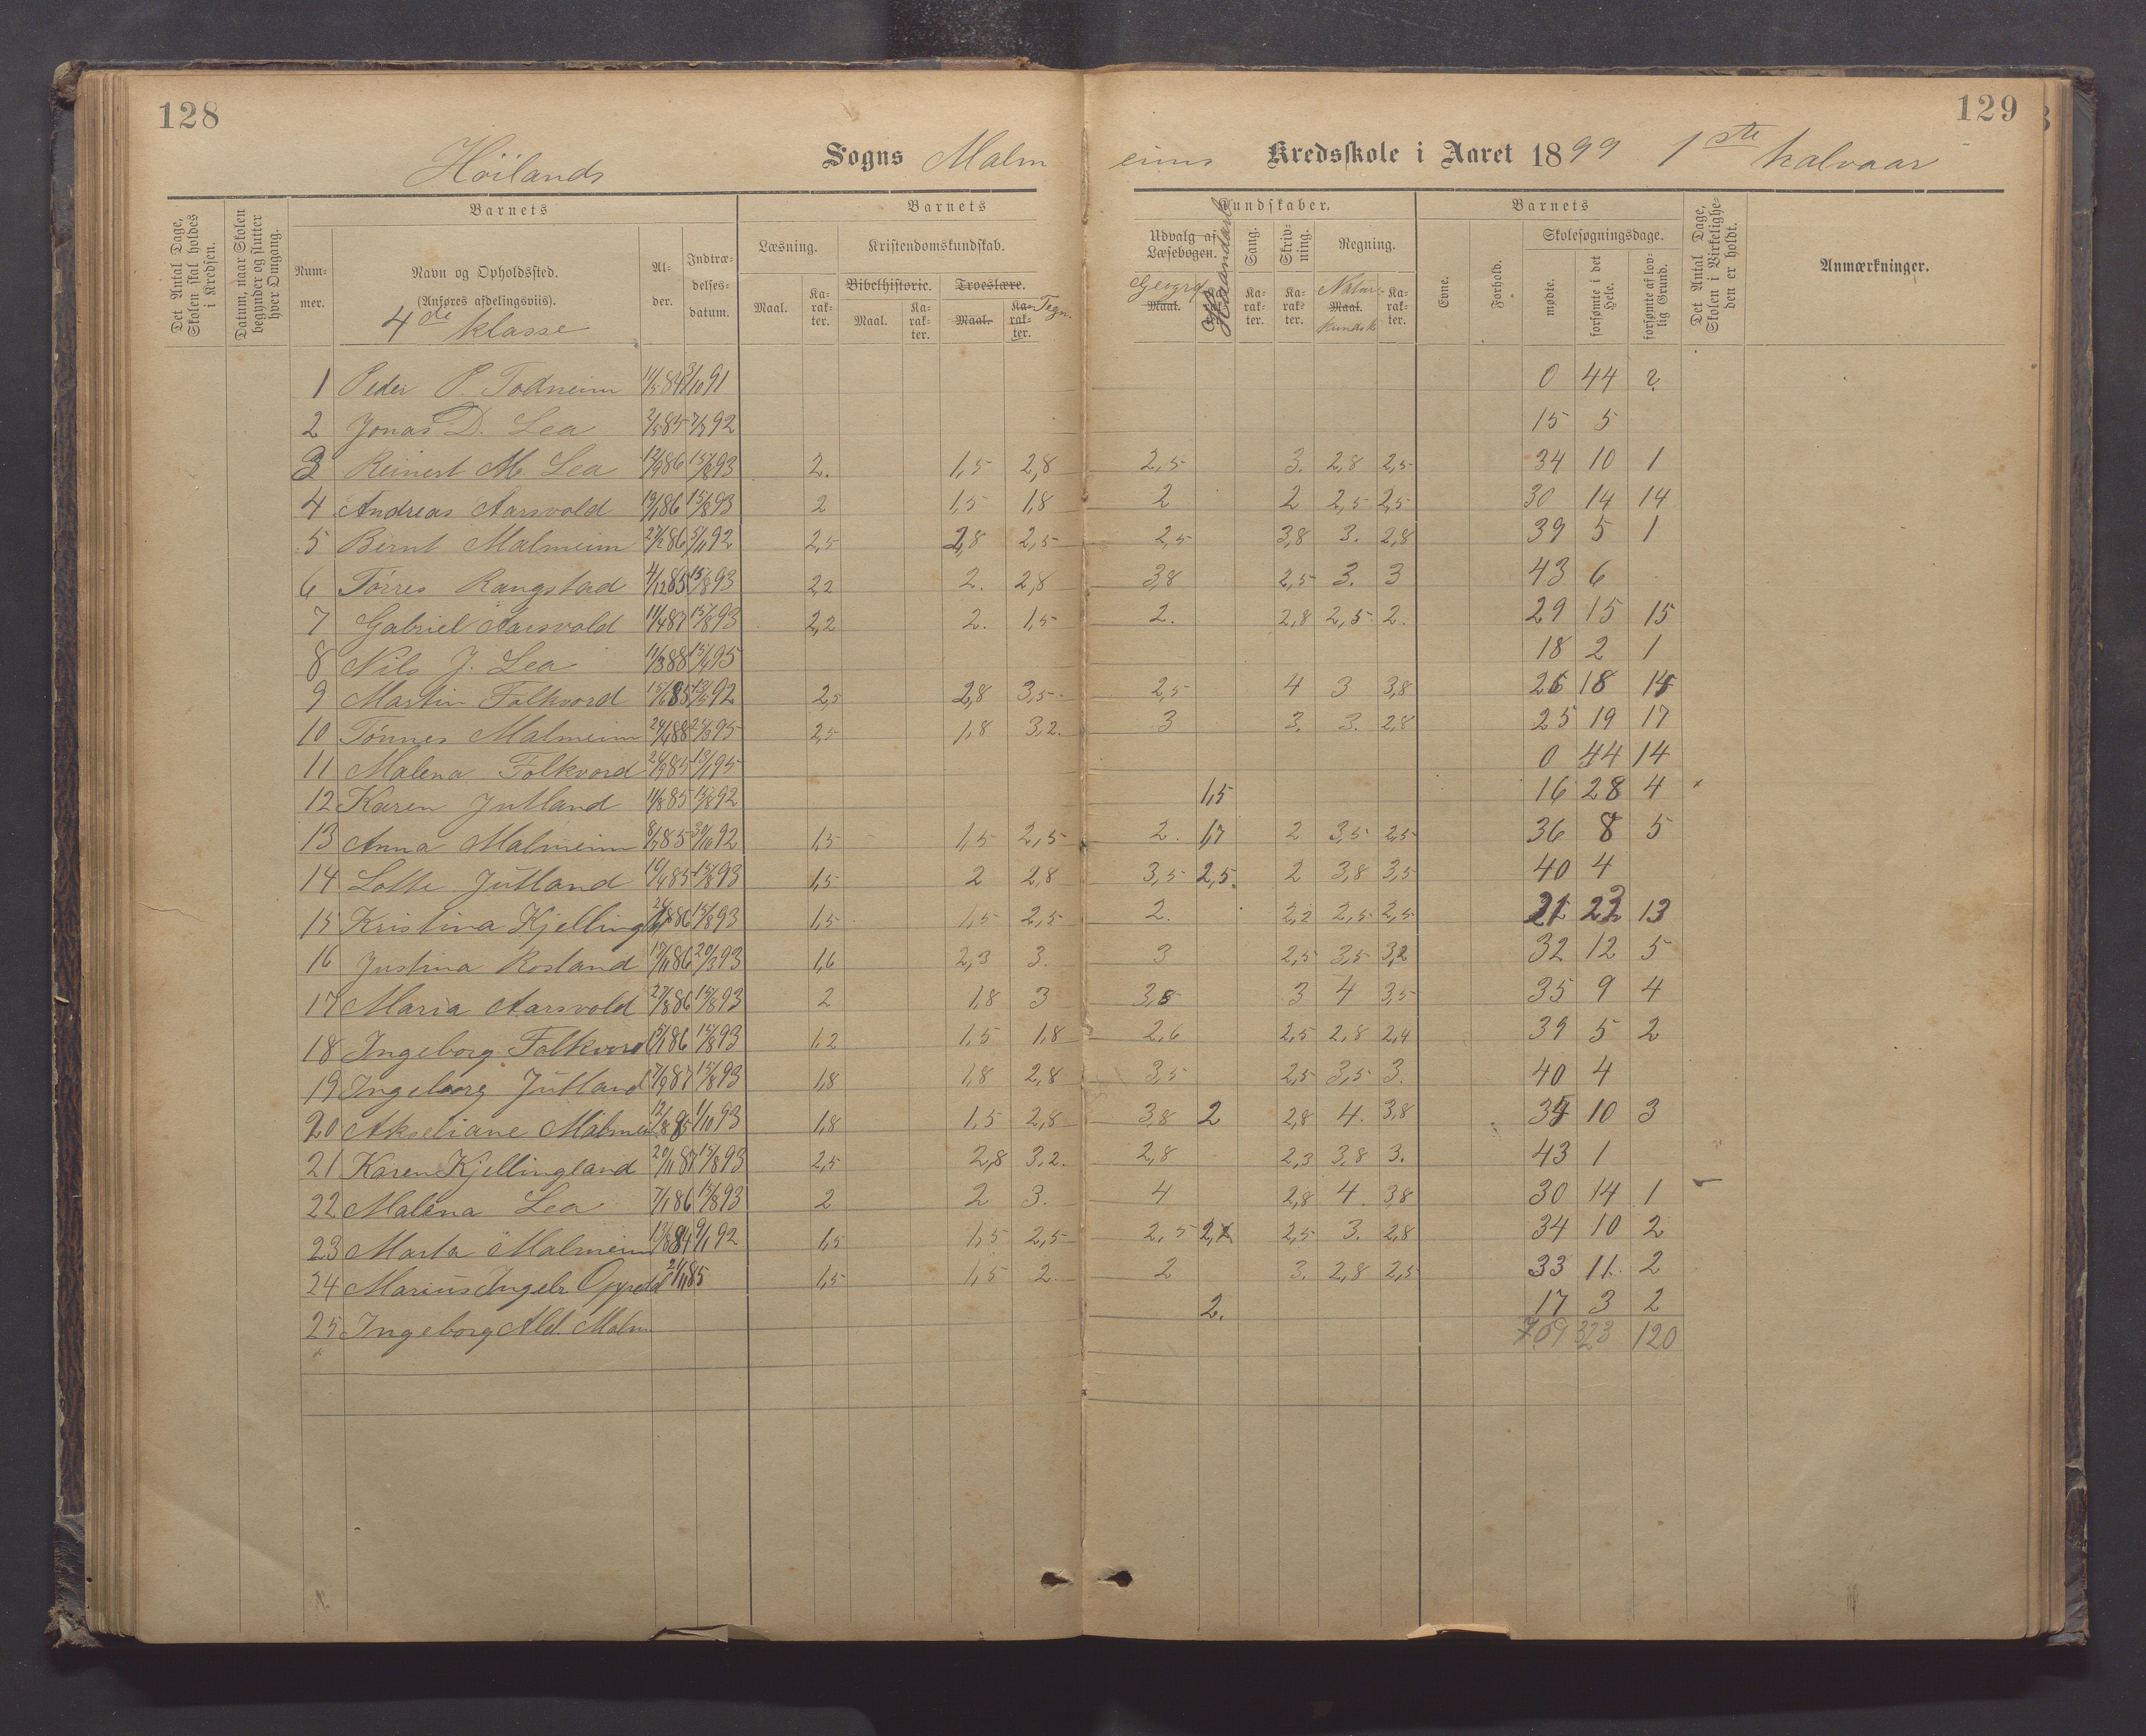 128
129
Höilands Sogns Malm eims Kredsskole i Aaret 1899 1ste halvaar
Det Antal Dage, Skolen skal holdes i Kredsen.
Datum, naar Skolen begynder og slutter hver Omgang.
Barnets
Barnets
Kundskaber.
Barnets
Det Antal Dage, Skolen i Virkelighe- den er holdt.
Anmærkninger.
Num- mer.
Navn og Opholdssted.
(Anføres afdelingsviis).
4de klasse
Al- der.
Indtræ- delses- datum.
Læsning.
Maal.
Ka- rak- ter.
Kristendomskundskab.
Bibelhistorie.
Maal.
Ka- rak- ter.
Troeslære.
Maal.
Ka- rak- ter.
Tegn.
Udvalg af Læsebogen.
Geogra
Maal.
Haandarb
Sang.
Ka- rak- ter.
Skriv- ning.
Ka- rak- ter.
Regning.
Natur-
Maal.
kundsk
Ka- rak- ter.
Evne.
Forhold.
Skolesøgningsdage.
mødte.
forsømte i det Hele.
forsømte af lov- lig Grund.
1 Peder P. Todneim 11/5 84 3/10 91 0 44 2
2 Jonas D. Lea 2/5 85 7/7 92 15 5
3 Reinert M. Lea 12/9 86 15/8 93 2. 1,5 2,8 2,5 3. 2,8 2,5 34 10 1
4 Andreas Aarsvold 19/1 86 15/8 93 2 1,5 1,8 2 2 2,5 2,5 30 14 14
5 Bernt Malmeim 27/2 86 5/11 92 2,5 2,8 2,5 2,5 3,8 3. 2,8 39 5 1
6 Tórres Rangstad 4/12 85 15/8 93 2,2 2. 2,8 3,8 2,5 3. 3 43 6
7 Gabriel Aarsvold 11/4 87 15/8 93 2,2 2. 1,5 2. 2,8 2,5 2. 29 15 15
8 Nils J. Lea 11/3 88 15/4 95 18 2 1
9 Martin Folkvord 15/6 85 13/5 92 2,5 2,8 3,5 2,5 4 3 3,8 26 18 15
10 Tönnes Malmeim 24/4 88 25/3 95 2,5 1,8 3,2. 3 3. 3. 2,8 25 19 17
11 Malena Folkvord 26/3 85 13/1 95 0 44 14
12 Karen Jutland 11/8 85 15/8 92 1,5 16 28 4
13 Anna Malmeim 8/7 85 30/10 92 1,5 1,5 2,5 2. 1,7 2 3,5 2,5 36 8 5
14 Lotte Jutland 10/4 85 15/8 93 1,5 2 2,8 3,5 2,5. 2 3,8 3,5 40 4
15 Kristina Kjellingl 86 15/8 93 1,5 1,5 2,5 2. 2,2 2,5 2,5 21 23 13
16 Justina Rosland 17/11 86 20/3 93 1,6 2,3 3. 3 2,5 3,5 3,2 32 12 5
17 Maria Aarsvold 27/8 86 15/8 93 2 1,8 3 3,8 3 4 3,5 35 9 4
18 Ingeborg Folkvord 15/1 86 15/8 93 1,2 1,5 1,8 2,6 2,5 2,8 2,4 39 5 2
19 Ingeborg Jutland 7/9 87 15/8 93 1,8 1,8 2,8 3,5 2,5 3,5 3. 40 4
20 Akseliane Malmeim 12/8 85 1/10 93 1,8 1,5 2,8 3,8 2 2,8 4. 3,8 34 10 3
21 Karen Kjellingland 20/11 87 15/8 93 2,5 2,8 3,2. 2,8 2,3 3,8 3. 43 1
22 Malena Lea 7/1 86 15/8 93 2 2 3. 4 2,8 4. 3,8 30 14 1
23 Marta Malmeim 13/8 84 9/1 92 1,5 1,5 2,5 2,5 2, 2,5 3. 2,8 34 10 2
24 Marius Ingebr. Oppedal 24/11 85 1,5 1,5 2. 2 3. 2,8 2,5 33 11. 2
25 Ingeborg Ald. Malm 2. 17 3 2
709 323 120